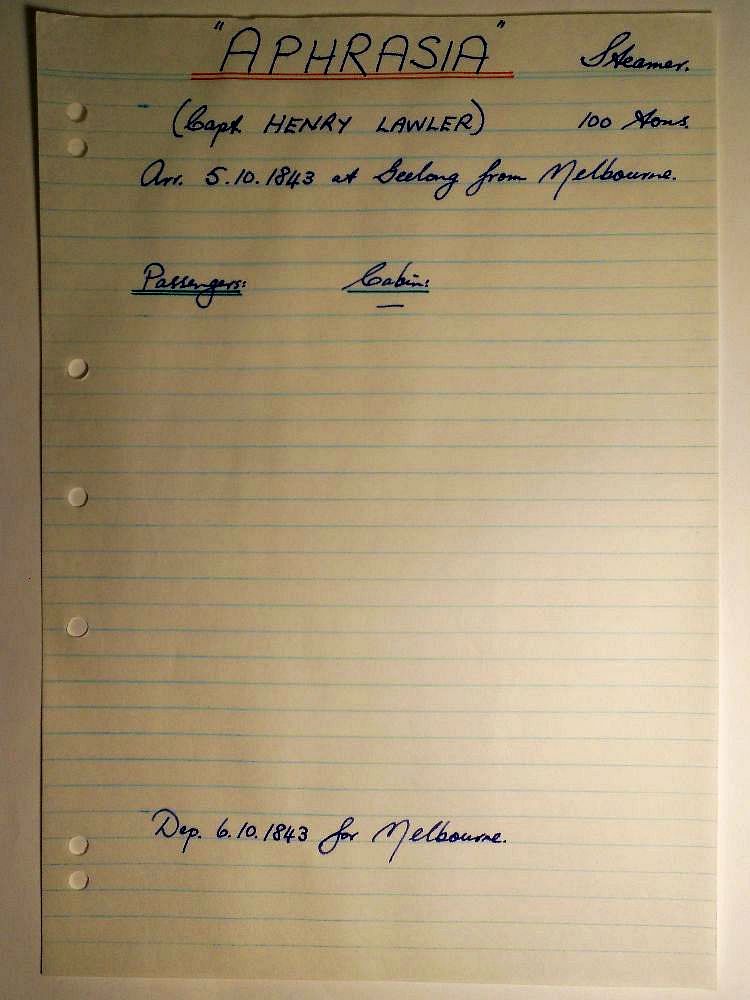 "APHRASIA" Steamer.
(Capt HENRY LAWLER) 100 Tons.
Arr. 5.10.1843 at Geelong from Melbourne.
Passengers: Cabin:
—
Dep. 6.10.1843 for Melbourne.